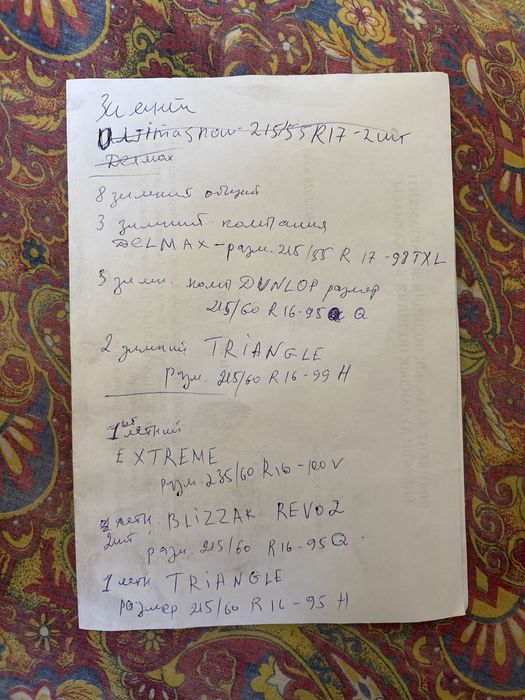 Зимний
Ultimasnow - 215/55 R17 - 2 шт
Delmax
8 зимний общий
3 зимний компания
DELMAX - разм. 215/55 R 17 - 98TXL
3 зимн. комп DUNLOP размер
215/60 R 16 - 95 Q
2 зимний TRIANGLE
разм. 215/60 R 16 - 99 H
1 шт летний
EXTREME
разм 235/60 R 16 - 100 V
летн. BLIZZAK REVO2
2шт разм. 215/60 R 16 - 95 Q.
1 летн. TRIANGLE
размер 215/60 R 16 - 95 H